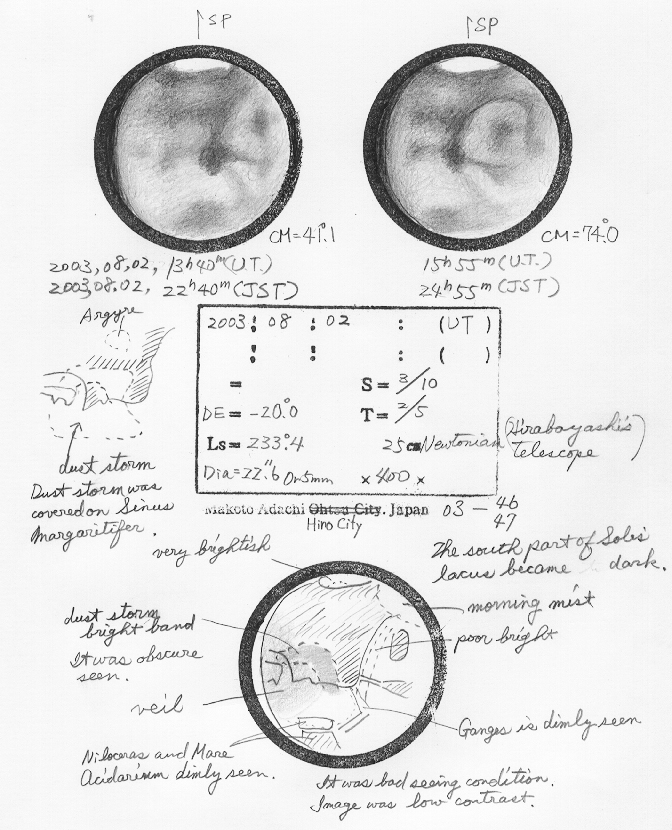 SP
SP
CM=41°.1
CM=74°.0
2003,08,02, 13h40m(U.T.)
2003,08.02, 22h40m(JST)
15h55m(U.T.)
24h55m(JST)
Argyre
dust storm
Dust storm was
covered on Sinus
Margaritifer.
2003: 08 : 02 : (UT )
: : : ( )
= S= 3/10
DE= -20°.0 T= 2/5
Ls= 233°.4 25cm Newtonian (Hirabayashi's
telescope)
Dia=22".6 Or5mm ×400×
Makoto Adachi Ohtsu City. Japan 03 - 46
47
Hino City
very brightish
The south part of Solis
lacus became dark.
morning mist
poor bright
dust storm
bright band
It was obscure
seen.
veil
Ganges is dimly seen
Niloceras and Mare
Acidarium dimly seen.
It was bad seeing condition.
Image was low contrast.